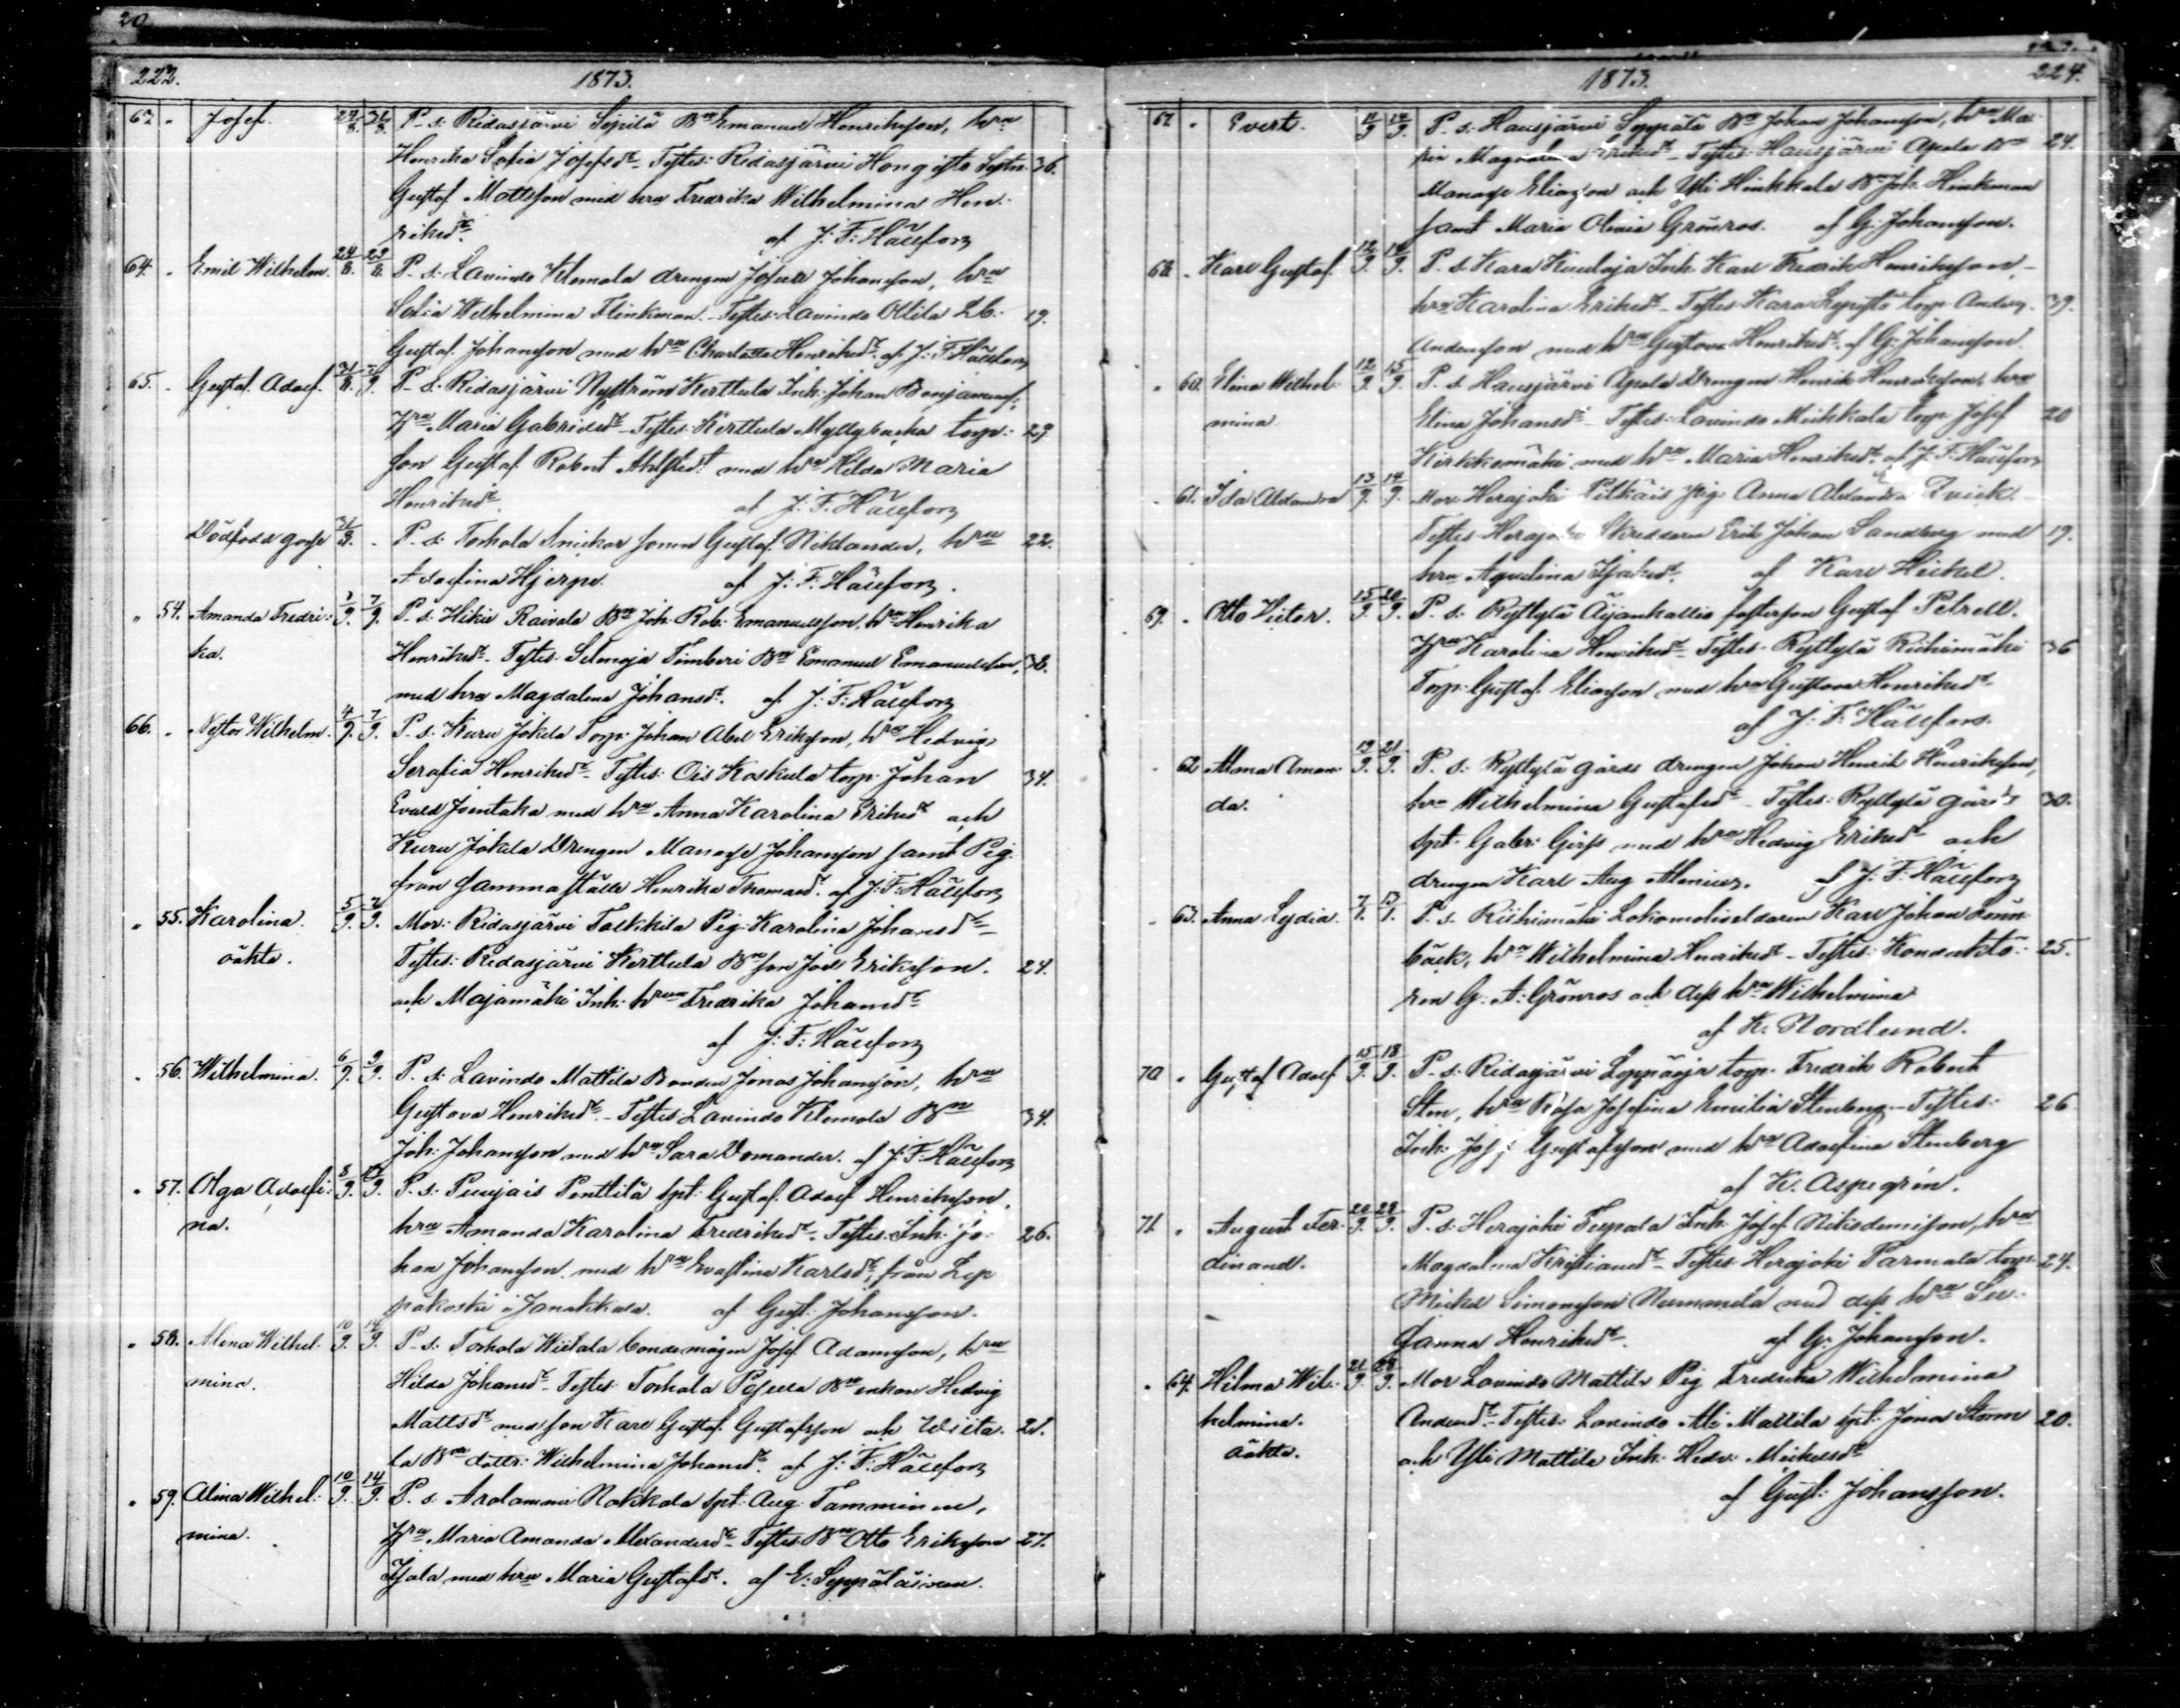 20
222. 1873.
63. " Josef. 27/8. 31/8. P. s. Ridasjärvi Sipilä Bn Emanuel Henriksson, hru
Henrika Sofia Josefsdr. Testes: Ridasjärvi Hongisto Sytn. 36.
Gustaf Mattsson med hru Fredrika Wilhelmina Hen-
riksdr. af J: F: Hällfors
64. " Emil Wilhelm. 24/8. 29/8. P. s. Lavindo Klemola drengen Josua Johansson, hru
Sofia Wilhelmina Flinkman. Testes: Lavindo Ollila Lb. 19.
Gustaf Johansson med hru Charlotta Henriksdr. af J: F: Hällfors
65. " Gustaf Adolf. 31/8. 7/9. P. s. Ridasjärvi Nyström Kerttula Inh. Johan Benjaminss.,
Hru Maria Gabrielsdr. Testes: Kerttula Myllybacka torp: 29
son Gustaf Robert Ahlstedt med hru Hilda Maria
Henriksdr. af J. F. Hällfors
Dödfödd gosse 31/8. - P. s. Torhola Snickar sonen Gustaf Niklander, hru 22.
Adolfina Hjerpe. af J: F: Hällfors.
" 54. Amanda Fredri- 3/9. 7/9. P. s. Hikiä Raivala Bn Joh. Rob. Emanuelsson, hru Henrika
ka. Henriksdr. Testes: Selänoja Timberi Bn Emanuel Emanuelsson, 38.
med hru Magdalena Johansdr. af J: F: Hällfors
66. " Nestor Wilhelm. 4/9. 7/9. P. s. Kuru Jokela Torp. Johan Abel Eriksson, hru Hedvig
Serafia Henriksdr. Testes: Ois Koskela torp. Johan 34.
Evald Joentaka med hru Anna Karolina Eriksdr. och
Kuru Jokela Drengen Manasse Johansson samt Pig.
från samma ställe Henrika Thomasdr. af J: F: Hällfors
" 55. Karolina. 5/9. 7/9. Mor: Ridasjärvi Tackkila Pig. Karolina Johansdr.
oäkta. Testes: Ridasjärvi Kerttula Bn son Joel Eriksson. 24.
och Majamäki Inh. hrun Fredrika Johansdr.
af J: F: Hällfors
" 56. Wilhelmina. 6/9. 9/9. P. s. Lavindo Mattila Bonden Jonas Johansson, hru
Gustava Henriksdr. Testes: Lavindo Klemola Bn 34.
Joh: Johansson med hru Sara Domander. af J: F: Hällfors
" 57. Olga Adolfi- 8/9. 9. P. s. Puujais Penttilä Spt. Gustaf Adolf Henriksson,
na. hru Amanda Karolina Fredriksdr. Testes: Inh. Jo- 26.
han Johansson med hru Evastina Karlsdr. från Lep
päkoski i Janakkala. af Gust: Johansson.
" 58. Alma Wilhel- 10/9. 14/9. P. s. Torhola Wiitala bondemågen Josef Adamsson, hru
mina. Hilda Johansdr. Testes: Torhola Bn enkan Hedvig
Mattsdr. med son Karl Gustaf Gustafsson och Wiita- 21.
la Bn dottr. Wilhelmina Johansdr. af J: F: Hällfors
" 59. Alina Wilhel- 10/9. 14/9. P. s. Arolammi Nokkala Spt. Aug. Tamminen,
mina. Hru Maria Amanda Alexandersdr. Testes: Bn Otto Eriksson 27.
med hru Maria Gustafsdr. af E: Seppäläinen.
1873. 224.
67. " Evert. 11/9 14/9. P. s. Hausjärvi Seppälä Bn Johan Johansson, hru Ma-
ria Magdalena Eriksdr. Testes: Hausjärvi Apola Bn 24.
Manasse Eliasson och Yli Hinkkala Bn Joh. Hinkman
samt Maria Olivia Grönroos. af G: Johansson.
68. " Karl Gustaf. 12/9. 14/9. P. s. Kara Kuuloja Inh. Karl Fredrik Henriksson,
hru Karolina Eriksdr. Testes: Kara Lepistö torp. Anders 39.
Andersson med hru Gustava Henriksdr. af G: Johansson.
" 60. Elina Wilhel- 12/9. 15/9. P. s. Hausjärvi Apola Drengen Henrik Henriksson, hru
mina. Elina Johansdr. Testes: Lavindo Mickkala torp. Josef 20
Kirkkomäki med hru Maria Henriksdr. af J: F: Hällfors
" 61. Ida Aldandra 13/9. 14/9. Mor: Herajoki Pitkäis pig. Anna Alexandra Qvick.
Testes: Herajoki Skreddaren Erik Johan Sandberg med 19.
hru Aqvelina Isaksdr. af Karl Heikel.
69. " Otto Victor. 15/9. 20/9. P. s. Ryttylä Äijänkallio fosterson Gustaf Petrell.
Hru Karolina Henriksdr. Testes: Ryttylä Riihimäki 36
Torp. Gustaf Eliasson med hru Gustava Henriksdr.
af J: F: Hällfors.
" 62. Alma Aman- 19/9. 21/9. P. s. Ryttylä gårds drengen Johan Henrik Henriksson,
da. hru Wilhelmina Gustafsdr. Testes: Ryttylä gårds 30.
Spt. Gabr: Girss med hru Hedvig Eriksdr. och
drengen Karl Aug Alenius. af J: F: Hällfors
" 63. Anna Lydia. P. s. Riihimäki Lokomotiveldaren Karl Johan Lönn
bäck, hru Wilhelmina Henriksdr. Testes: Kondukto- 25.
ren G: A: Grönroos och dess hru Wilhelmina
af K: Nordlund.
70 " Gustaf Adolf 15/9. 18/9. P. s. Ridasjärvi Leppäoja torp. Fredrik Robert
Sten, hru Rosa Josefina Emilia Stenberg. Testes: 26
Inh. Jos: Gustafsson med hru Adolfina Stenberg
af K. Aspegrén.
71. " August Fer- 20/9. 28/9. P. s. Herajoki Teepala Inh. Josef Nikodemisson, hru
dinand. Magdalena Kristiansdr. Testes: Herajoki Parmala torp. 24.
Mickel Simonsson Nummela med dess hru Su-
sanna Henriksdr. af G: Johansson.
" 64. Hilma Wil- 21/9. 28/9. Mor Lavindo Mattila Pig Fredrika Wilhelmina
helmina. Andersdr. Testes: Lavindo Ali Mattila Spt. Jonas Storm 20.
oäkta. och Yli Mattila Inh. Hedv: Mickelsdr.
af Gust: Johansson.